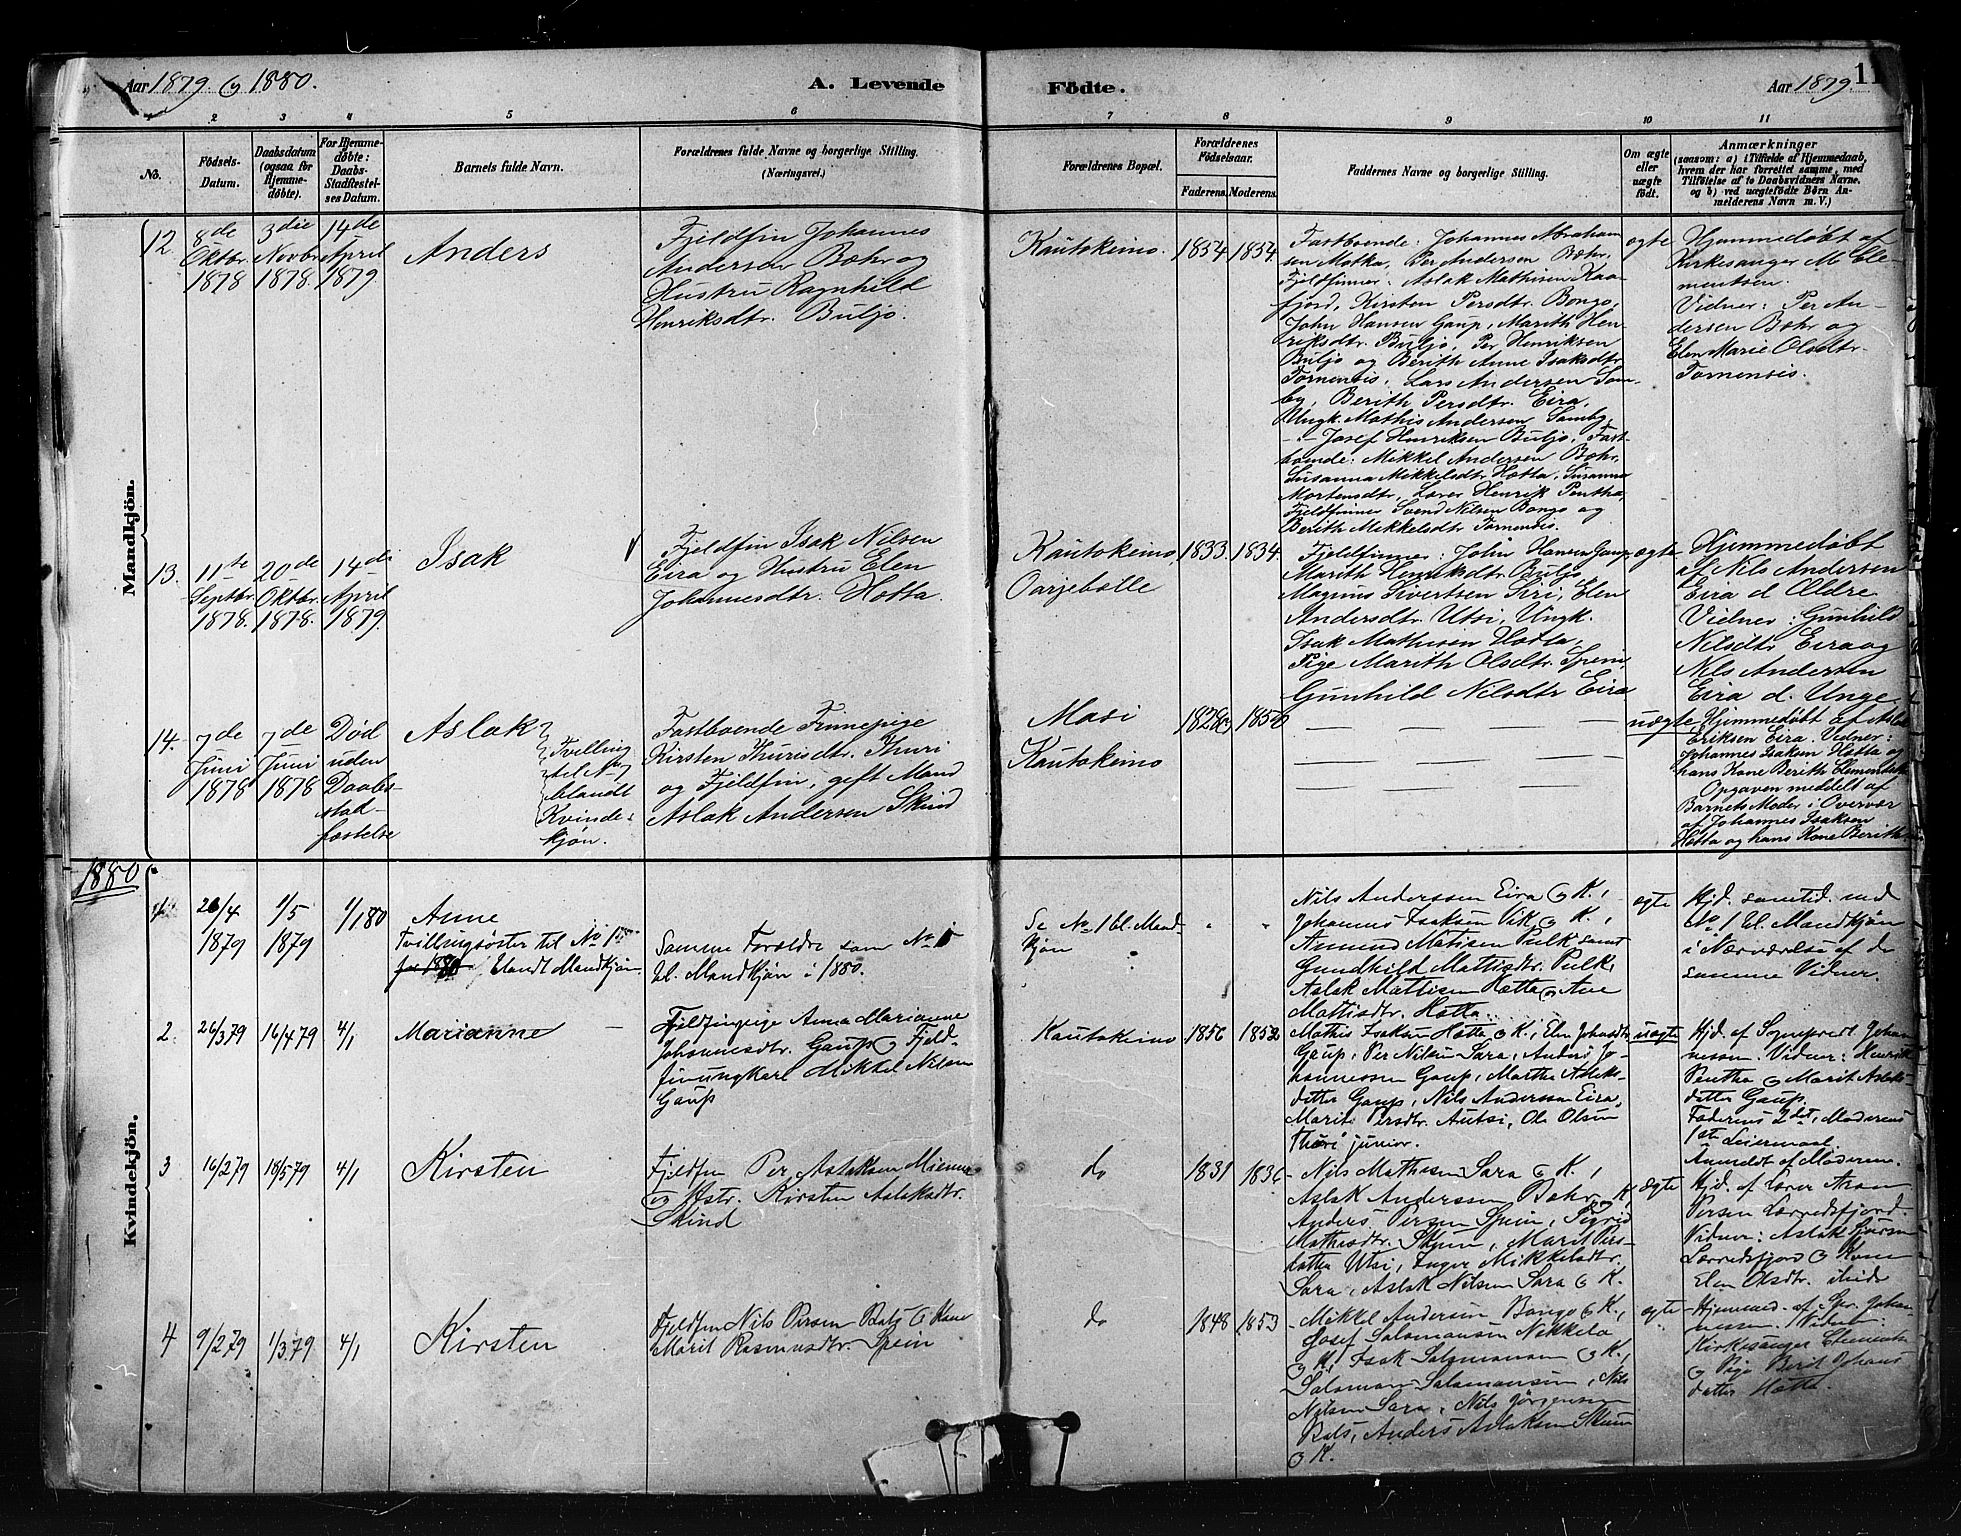 Aar 1879 og 1880.
A. Levende
Födte.
Aar 1879.
11
1 2 3 4 5 6 7 8 9 10 11
No.
Födsels-
Datum.
Daabsdatum
(ogsaa for
Hjemme-
døbte).
For Hjemme-
døbte:
Daabs-
Stadfæstel-
ses Datum.
Barnets fulde Navn.
Forældrenes fulde Navne og borgerlige Stilling.
(Næringsvei.)
Forældrenes Bopæl.
Forældrenes
Födselsaar.
Faderens.
Moderens.
Faddernes Navne og borgerlige Stilling.
Om ægte
eller
uægte
født.
Anmærkninger
(saasom: a) i Tilfælde af Hjemmedaab,
hvem der har forrettet samme, med
Tilføielse af to Daabsvidners Navne.
og b) ved uægtefødte Børn An-
melderens Navn m. V.)
Mandkjön.
12
8de
Oktbr.
1878
3die
Novbr
1878.
14de
April
1879
Anders
Fjeldfin Johannes
Andersen Bæhr og
Hustru Ragnhild
Henriksdtr. Buljo.
Kautokeino.
1854
1854.
Fastboende: Johannes Abraham
sen Matka, Per Andersen Bæhr,
Fjeldfinner: Aslak Mathisen Kaa-
fjord, Kirsten Persdtr. Bongo,
John Hansen Gaup, Marith Hen-
riksdtr. Buljo, Per Henriksen
Buljo og Berith Anne Isaksdtr
Tornensis, Lars Andersen Som-
by, Berith Persdtr. Eira,
Ungk. Mathis Andersen Somby,
-"- Josef Henriksen Buljo, Fast-
boende: Mikkel Andersen Bæhr,
Susanna Mikkelsdtr Hætta, Susanna
Mortensdtr, Lærer Henrik Pentha,
Fjeldfinner Svend Nilsen Bongo og
Berith Mikkelsdtr Tornensis.
ægte
Hjemmedøbt af
Kirkesanger M. Cle-
mentsen.
Vidner: Per An-
dersen Bæhr og
Elen Marie Olsdtr.
Tornensis.
13.
11te
Septbr.
1878.
20de
Oktbr.
1878.
14de
April
1879
Isak
Fjeldfin Isak Nilsen
Eira og Hustru Elen
Johannesdtr. Hotta.
Kautokeino,
Oarjebælle
1833.
1834.
Fjeldfinner: John Hansen Gaup,
Marith Henriksdtr. Buljo
Magnus Sivertsen Siri, Elen
Andersdtr. Utsi, Ungk.
Isak Mathisen Hætta,
Pige Marith Olsdtr. Spein,
Gunhild Nilsdtr Eira
ægte
Hjemmedøbt
af Nils Andersen
Eira d Ældre
Vidner: Gunhild
Nilsdtr Eira og
Nils Andersen
Eira d. Unge
14.
7de
Juni
1878
7de
Juni
1878
Död
uden
Daabs-
stad-
fæstelse
Aslak
Tvilling
til No
blandt
Kvinde-
kjøn.
Fastboende Finnepige
Kirsten Thurisdtr. Thuri
og Fjeldfin, gift Mand
Aslak Andersen Skind
Masi
Kautokeino
1828
1856
uægte
Hjemmedøbt af Aslak
Eriksen Eira. Vidner:
Johannes Isaksen Hætta og
hans Kone Berith Clementsdtr
Opgaven meddelt af
Barnets Moder i Overvær
af Johannes Isaksen
Hætta og hans Kone Berith
1880
Kvindekjön.
1
26/4
1879
1/5
1879
1/1 80
Anne
Tvillingsøster til No 1
for 1880 blandt Mandkjøn.
Samme Forældre som No 1
bl. Mandkjøn i 1880.
Se No 1 bl. Mand
kjøn
Nils Anderssen Eira & K.,
Johannes Isaksen Vik & K.,
Amund Matisen Pulk samt
Gundhild Mattisdtr. Pulk,
Aslak Mattisen Hætta og Ane
Matisdtr. Hætta.
ægte
Hjd. samtid. med
No 1 bl. Mandkjøn
i Nærværelse af de
samme Vidner
2
26/3 79
16/4 79
4/1
Marianne
Fjeldfinpige Anna Marianne
Johannesdtr. Gaup og Fjeld-
finungkarl Mikkel Nilsen
Gaup
Kautokeino
1856
1852
Mathis Isaksen Hætta & K., Elen Johansdtr
Gaup, Per Nilsen Sara, Anders Jo-
hannessen Gaup, Martha Aslaks-
datter Gaup, Nils Andersen Eira,
Marit Persdtr. Autsi, Ole Olsen
Thuri junior.
uægte
Hjd. af Sognepræst Johan-
nessen. Vidner: Henrik
Pentha & Marit Aslaks-
datter Gaup.
Faderens 2det, Moderens
1ste Leiermaal.
Anmeldt af Moderen.
3
16/2 79
18/5 79
4/1
Kirsten
Fjeldfin Per Aslaksen Mienna
og Hstr. Kirsten Aslaksdtr.
Skind
do
1831
1836
Nils Mathisen Sara & K.,
Aslak Anderssen Bæhr & K,
Anders Persen Spein, Sigrid
Mathisdtr. Skum, Marit Pers-
datter Utsi, Inger Mikkelsdtr.
Sara, Aslak Nilsen Sara & K.
ægte
Hjd. af Lærer Aram
Persen Lærredsfjord.
Vidner: Aslak Sjursen
Lærredsfjord & Kone
Elen Olsdtr. ibide
4
9/2 79
1/3 79
4/1
Kirsten
Fjeldfin Nils Persen Bals & Kone
Marit Rasmusdtr. Spein
do
1848
1853
Mikkel Andersen Bongo & K.,
Josef Salomonsen Nekkela
& K., Isak Salamonsen & K.,
Salamon Salamonsen, Nils
Nilsen Sara, Nils Jørgensen
Bals, Anders Aslaksen Skum
& K.
ægte
Hjemmed. af Spr. Johan-
nessen. Vidner:
Kirkesanger Clementsen
& Pige Berit Johans
datter Hætta.